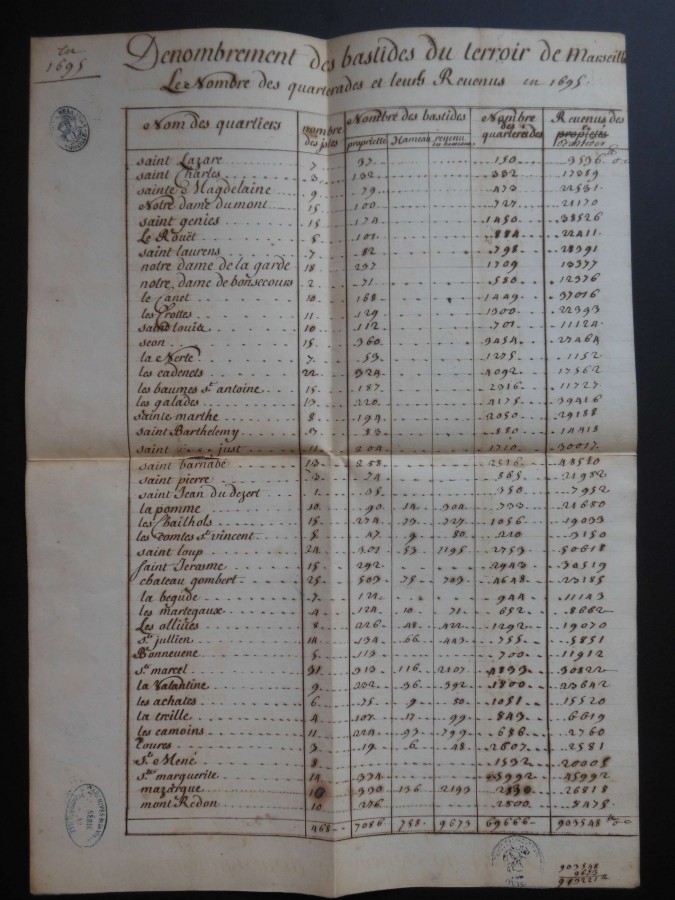 ter
1695
Denombrement des bastides du terroir de Marseille
Le Nombre des quarterades et leurs Revenus en 1695.
Nom des quartiers nombre des Nombre des bastides Nombre des quarterades Revenus des propietés bastides
propriette Hameau revenu
saint Lazare 7 37 150 9596
saint Charles 3 132 382 17389
sainte Magdelaine 9 79 473 22531
Notre dame du mont 15 100 727 21170
saint genies 15 174 1450 38526
Le Roüet 5 101 884 22411
saint laurens 7 82 798 28391
notre dame de la garde 18 237 1709 13377
notre dame de bonsecours 2 71 580 12376
le Canet 10 188 1449 37016
les Crottes 11 129 1300 22393
saint louis 10 112 701 11124
seon 15 360 3454 27464
la Nerte 7 53 1275 1152
les cadenets 22 324 4092 17562
les baumes st antoine 15 187 2316 11727
les galades 13 220 4175 39416
sainte marthe 8 194 2050 29188
saint Barthelemy 3 83 880 14418
saint just 11 204 1710 30017
saint barnabé 13 258 2516 48580
saint pierre 3 74 565 21982
saint Jean du dezert 1 35 350 7952
la pomme 10 90 14 304 733 21680
les Cailhols 15 274 73 727 1056 19033
les Comtes st vincent 5 47 9 80 220 3150
saint loup 24 301 53 1195 2753 50618
saint Jerasme 15 292 2943 30519
chateau gombert 25 509 75 703 4648 23185
la begude 7 121 944 11143
les martegaux 4 124 10 71 652 8662
Les ollives 8 226 48 422 1292 19070
st jullien 14 134 66 443 755 5851
Bonneuene 5 113 700 11912
st marcel 31 313 116 2107 4833 30822
la Valantine 9 232 36 392 1800 23642
les achates 6 75 9 50 1051 15520
la treille 4 107 17 99 843 6619
les camoins 11 224 93 799 686 2760
Eoures 3 19 6 48 2607 2581
st Mené 8 1532 20008
ste marguerite 14 334 3992 45992
mazargue 330 136 2193 2890 26818
mont Redon 10 276 2800 8475
468 7086 758 9673 69666 903548
903548
9673